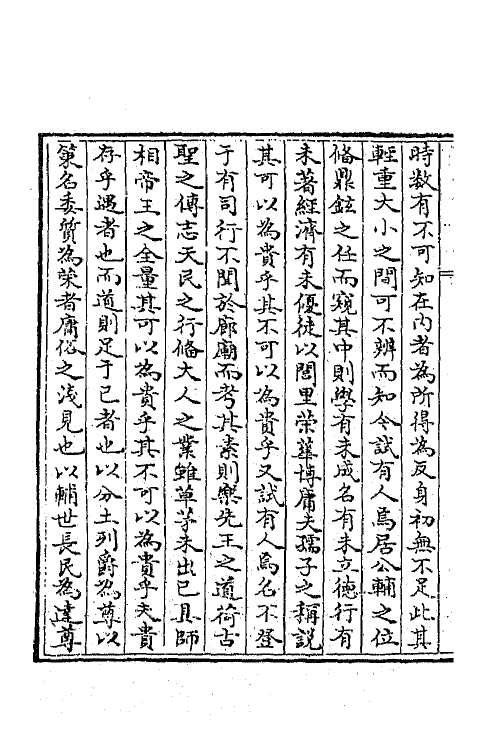 時数有不可知在內者為所得為反身初無不足此其
輕重大小之間可不辨而知今試有人焉居公輔之位
偹鼎鉉之任而窺其中則學有未成名有未立德行有
未著經濟有未優徒以閭里榮華博庸夫孺子之稱説
其可以為貴乎其不可以為貴乎又試有人焉名不登
于有司行不聞於廊廟而考其素則樂先王之道荷古
聖之傳志天民之行偹大人之業雖草茅未出已具師
相帝王之全量其可以為貴乎其不可以為貴乎夫貴
存乎遇者也而道則足于已者也以分土列爵為尊以
策名委質為榮者庸俗之淺見也以輔世長民為達尊